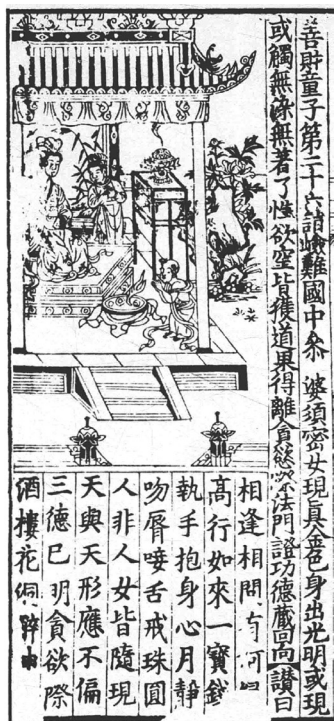 善財童子第二十六詣嶮難國中叅 婆須密女現眞金色身出光明或現
或觸無染無著了性欲空皆獲道果得離貪慾際法門證功德藏回向讃曰
相逢相問有何
高行如來一寶錢
執手抱身心月靜
吻脣唼舌戒珠圓
人非人女皆隨現
天與天形應不偏
三德已明貪欲際
酒樓花洞醉